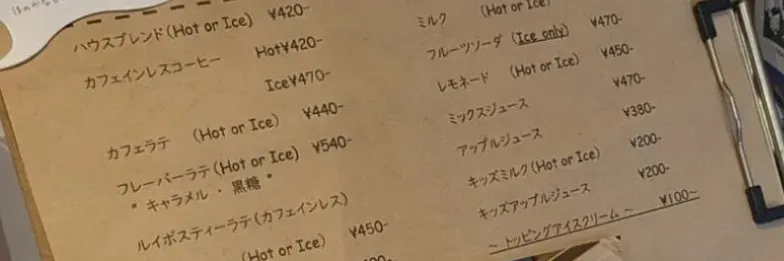 ハウスブレンド(Hot or Ice) ¥420-
カフェインレスコーヒー Hot¥420-
Ice¥470-
カフェラテ (Hot or Ice) ¥440-
フレーバーラテ(Hot or Ice) ¥540-
* キャラメル ・ 黒糖 *
ルイボスティーラテ(カフェインレス)
(Hot or Ice) ¥450-
ミルク (Hot or Ice)
フルーツソーダ (Ice only) ¥470-
レモネード (Hot or Ice) ¥450-
ミックスジュース ¥470-
アップルジュース ¥380-
キッズミルク(Hot or Ice) ¥200-
キッズアップルジュース ¥200-
~ トッピングアイスクリーム ~ ¥100-